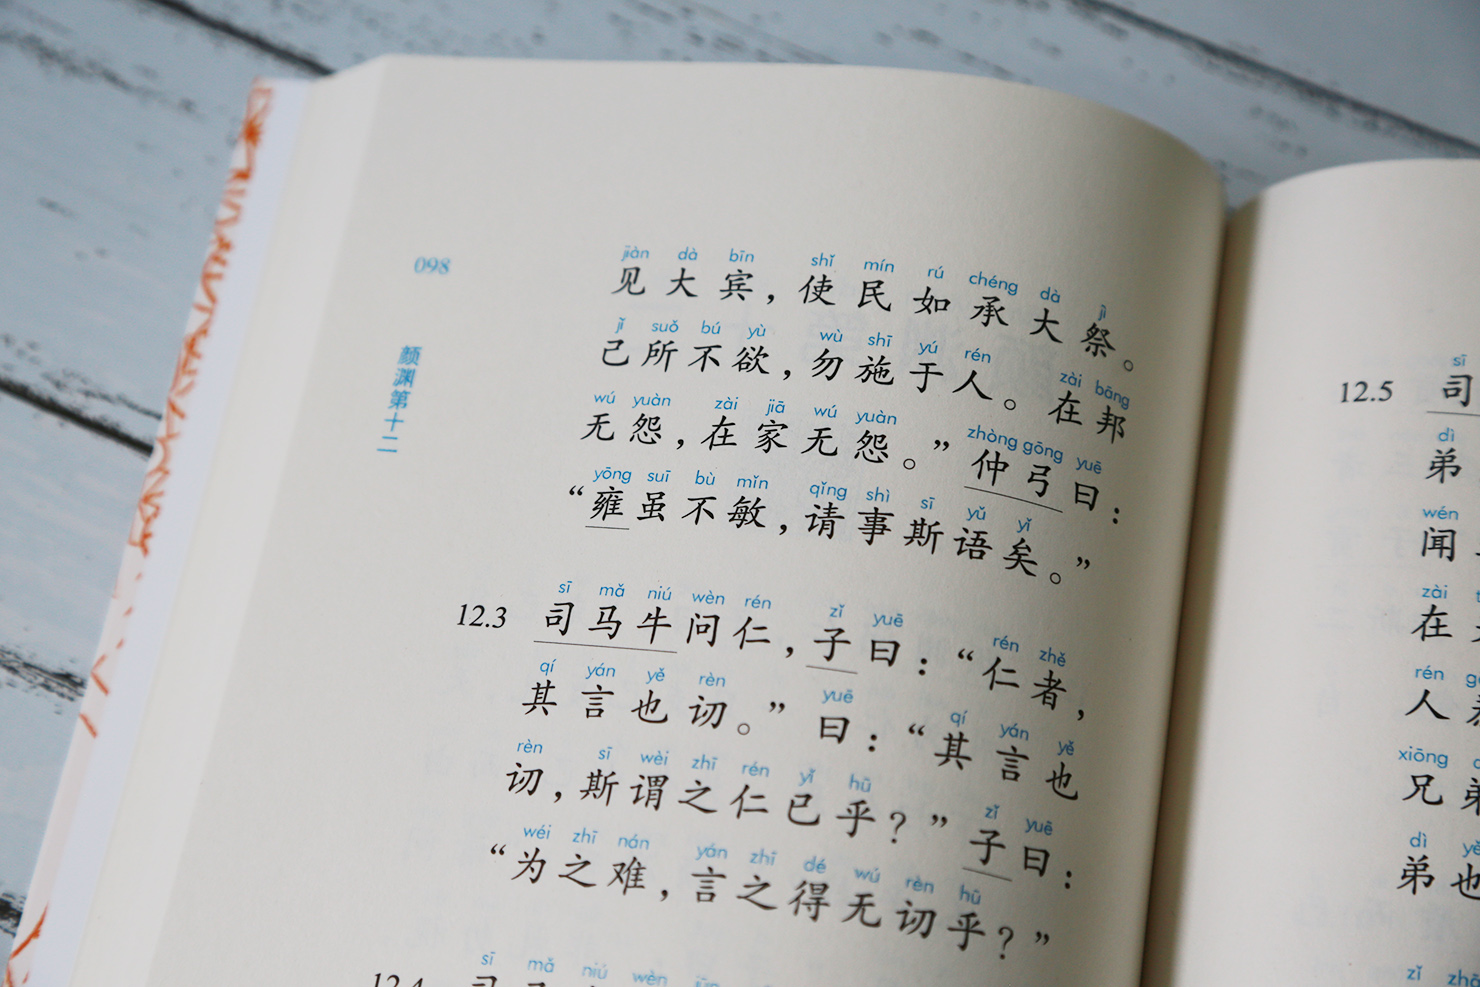 098
颜渊第十二
jiàn dà bīn shǐ mín rú chéng dà jì
见大宾，使民如承大祭。
jǐ suǒ bú yù wù shī yú rén zài bāng
己所不欲，勿施于人。在邦
wú yuàn zài jiā wú yuàn zhòng gōng yuē
无怨，在家无怨。”仲弓曰：
yōng suī bù mǐn qǐng shì sī yǔ yǐ
“雍虽不敏，请事斯语矣。”
sī mǎ niú wèn rén zǐ yuē rén zhě
12.3 司马牛问仁，子曰：“仁者，
qí yán yě rèn yuē qí yán yě
其言也讱。”曰：“其言也
rèn sī wèi zhī rén yǐ hū zǐ yuē
讱，斯谓之仁已乎？”子曰：
wéi zhī nán yán zhī dé wú rèn hū
“为之难，言之得无讱乎？”
sī mǎ niú wèn
12.4
sī
12.5 司
dì
弟
wén
闻
zài
在
rén
人
xiōng
兄弟
dì yě
弟也
zǐ